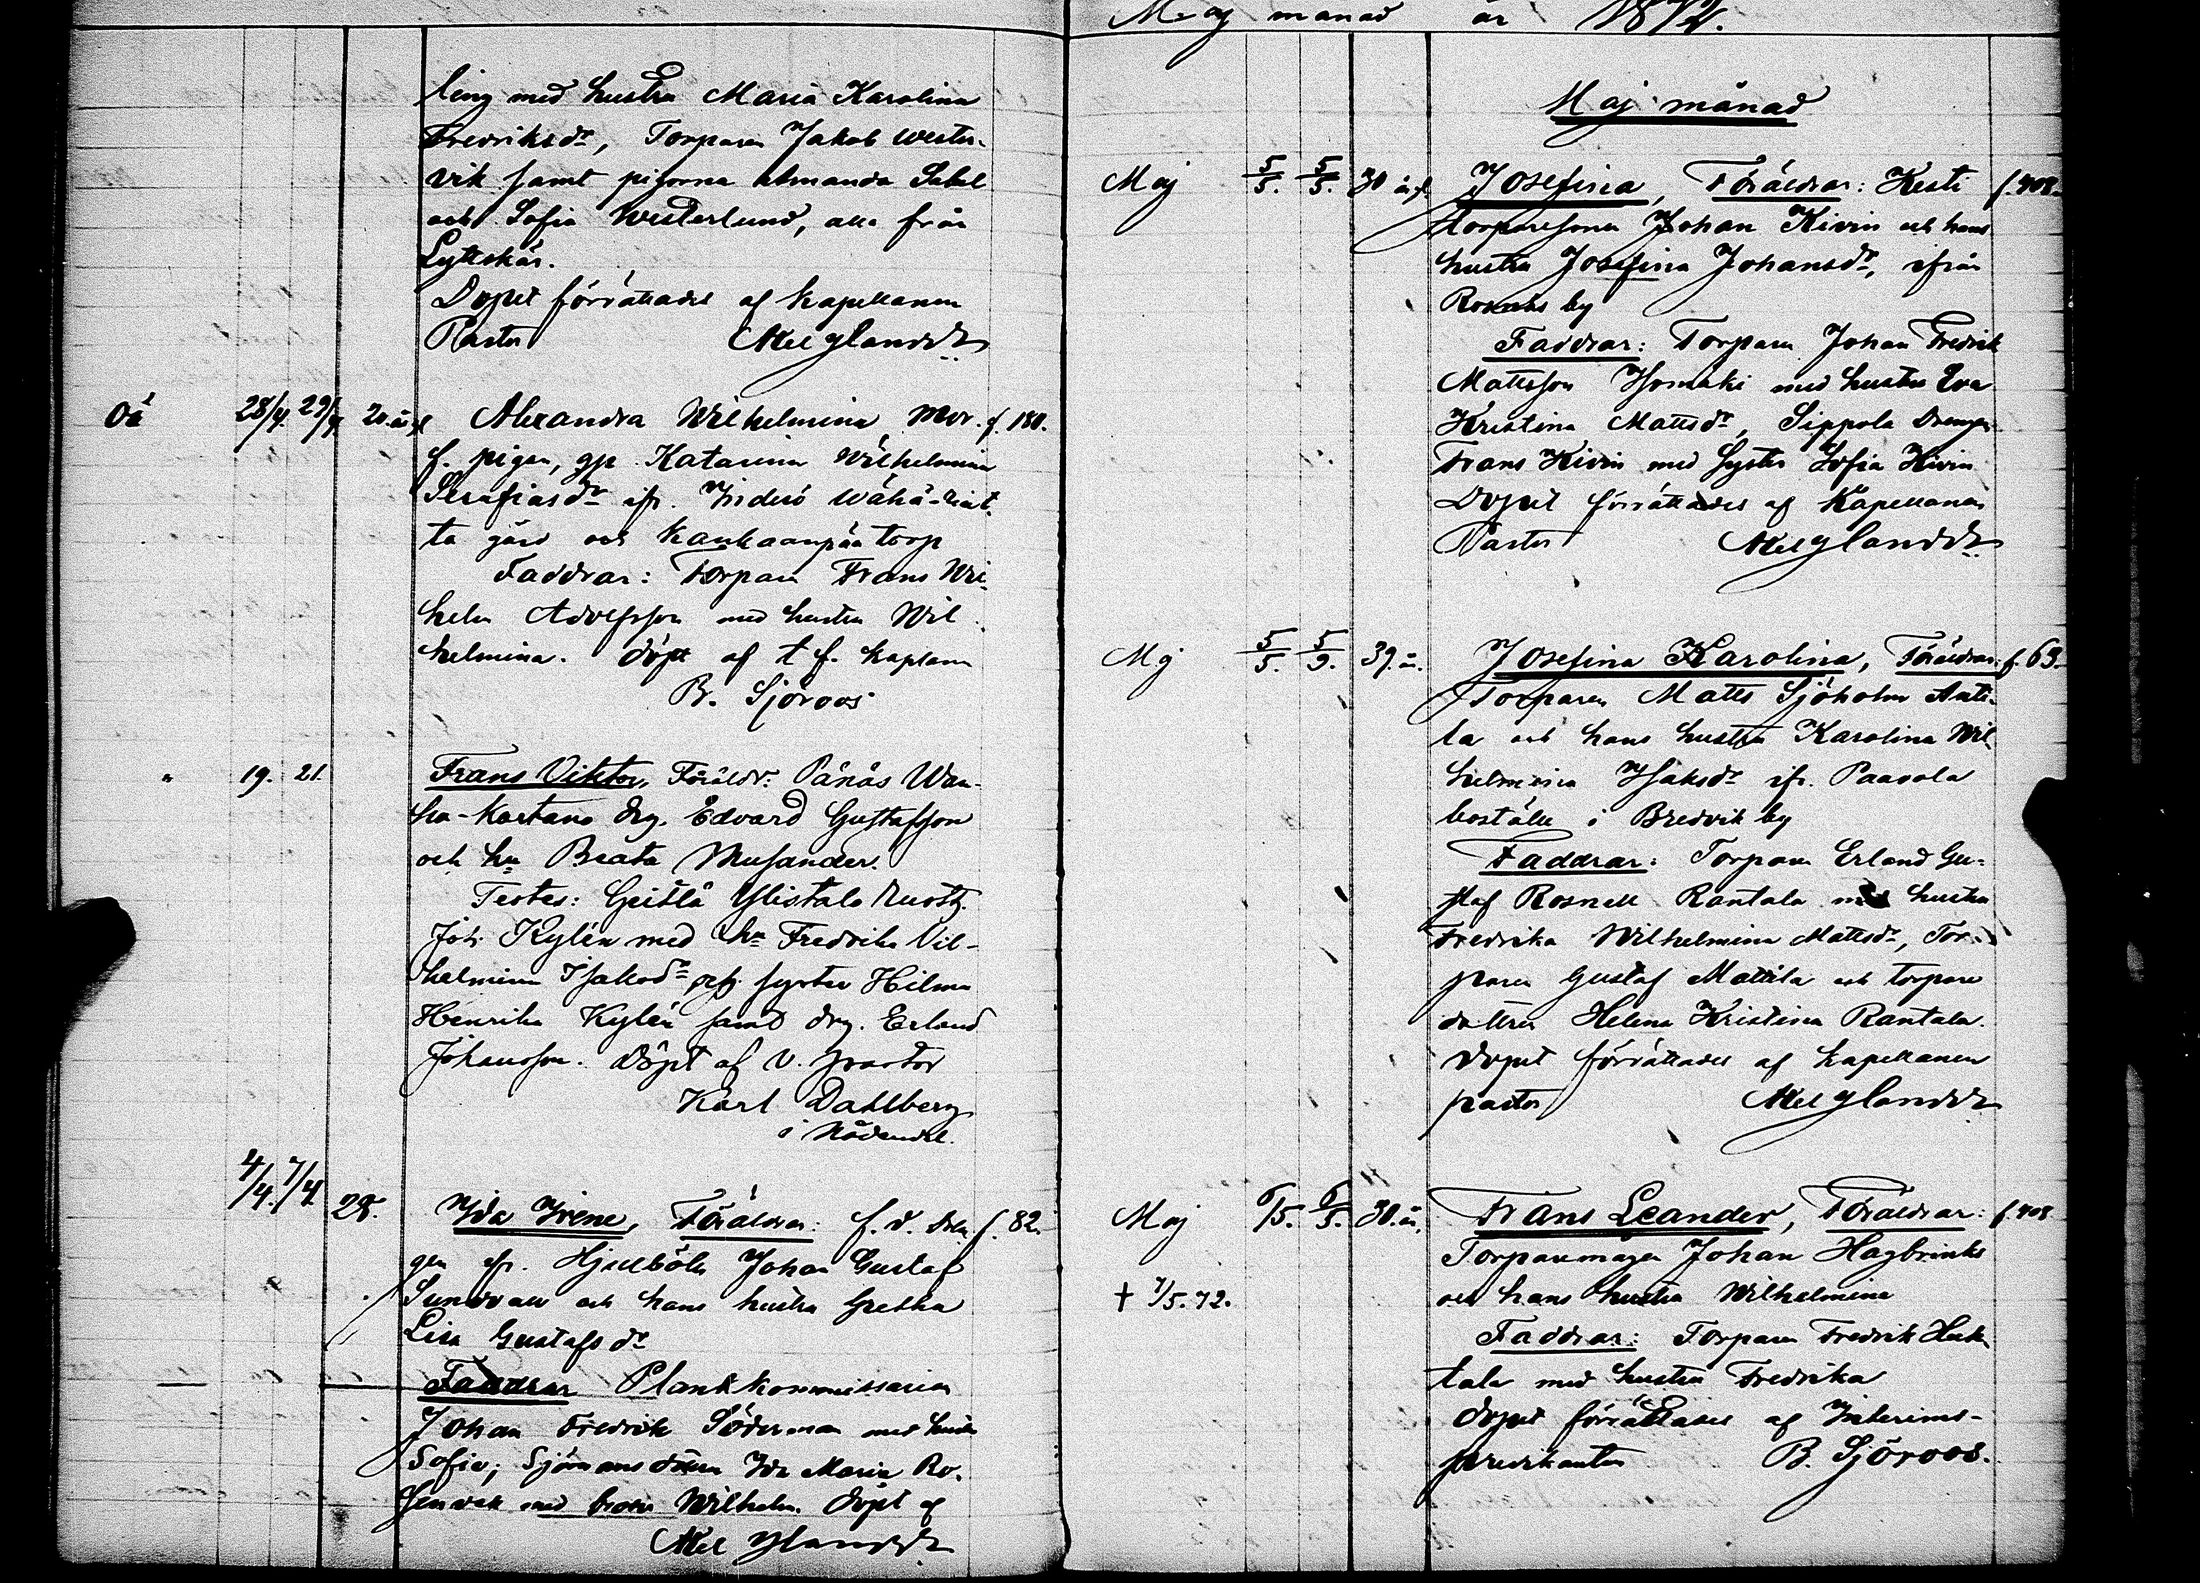 ling med hustru Maria Karolina
Fredriksdr, Torparen Jakob Wester-
vik samt pigorna Amanda Sabel
och Sofia Westerlund, alla från
Lyttskär.
Dopet förrättades af kapellanen
Pastor Axel Ylander
28/4. 29/4 20. år Alexandra Wilhelmina, Mor. f. 180.
f. pigan, Katarina Wilhelmina
Serafiasdr ifr. Inderö Wähä-
ta gård och Kankaanpää torp
Faddrar: Torparen Frans Wil-
helm Adolfsson med hustru Wil
helmina. Döpt af t. f. kaplan
B. Sjöroos
" 19. 21. Frans Viktor, Föräldr: Pänäs Wan-
ha-Kartano drg. Edvard Gustafsson
och hu Beata Musander.
Testes: Geitlä Ylistalo
Joh. Kylén med hu Fredrika Vil-
helmina Isaksdr, syster Hilma
Henrika Kylén samt drg. Erland
Johansson. Döpt af v. pastor
Karl Dahlberg
i Nådendal.
4/4. 7/4 28. Ida Irene, Föräldrar: f. d. drän f. 82.
gen ifr. Hjulböle Johan Gustaf
Sundvall och hans hustru Greta
Lisa Gustafsdr
Faddrar Plankkommissarien
Johan Fredrik Söderman med hustru
Sofia; Sjömans Ida Maria Ro-
senvik med broder Wilhelm. Döpt af
Axel Ylander
Maj månad år 1872.
Maj månad
Maj 5/5. 5/5. 30 år Josefina, Föräldrar: Kesti f. 408.
torparesonen Johan Kivin och hans
hustru Josefina Johansdr, ifrån
Rosnäs by
Faddrar: Torparen Johan Fredrik
Mattsson Isomäki med hustru Eva
Kristina Mattsdr, Sippola Drengen
Frans Kivin med Syster Sofia Kivin
Dopet förrättades af Kapellanen
Pastor Axel Ylander
Maj 5/5. 5/5. 39. år. Josefina Karolina, Föräldrar: f. 63.
Torparen Matts Sjöholm Antti-
la och hans hustru Karolina Wil
helmina Isaksdr ifr. Paavola
boställe i Bredvik by
Faddrar: Torparen Erland Gu-
staf Rosnell Rantala med hustru
Fredrika Wilhelmina Mattsdr, Tor-
paren Gustaf Mattila och torpare
dottren Helena Kristina Rantala.
Dopet förrättades af kapellanen
pastor Axel Ylander
Maj 6/5. 6/5. 30. år. Frans Leander, Föräldrar: f. 408
Torparemågen Johan Hagbrinks
och hans hustru Wilhelmina
† 7/5. 72.
Faddrar: Torparen Fredrik Huh-
tala med hustru Fredrika
Dopet förrättades af Interims-
predikanten B. Sjöroos.